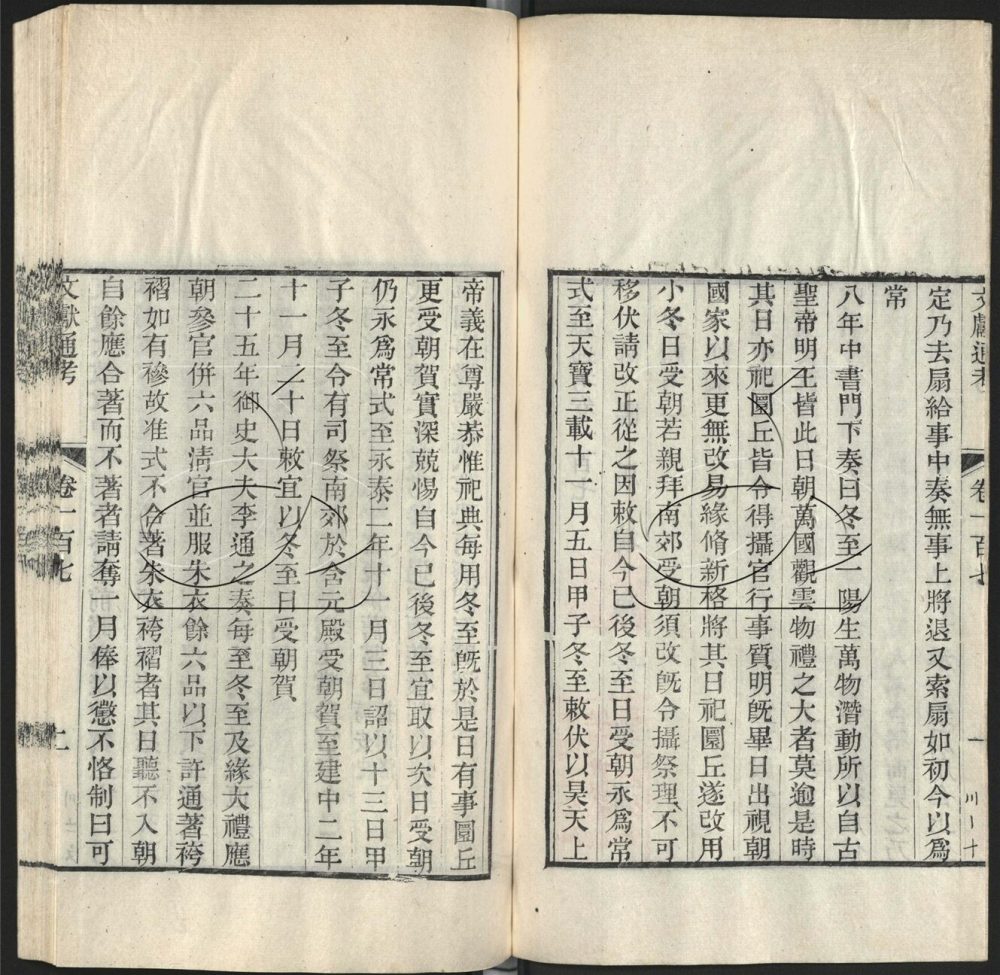 文獻通考 卷一百七 一
定乃去扇給事中奏無事上將退又索扇如初今以爲
常
八年中書門下奏曰冬至一陽生萬物潛動所以自古
聖帝明王皆此日朝萬國觀雲物禮之大者莫逾是時
其日亦祀圜丘皆令得攝官行事質明旣畢日出視朝
國家以來更無改易緣脩新格將其日祀圜丘遂改用
小冬日受朝若親拜南郊受朝須改旣令攝祭理不可
移伏請改正從之因敕自今已後冬至日受朝永爲常
式至天寶三載十一月五日甲子冬至敕伏以昊天上
帝義在尊嚴恭惟祀典每用冬至旣於是日有事圜丘
更受朝賀實深兢惕自今已後冬至宜取以次日受朝
仍永爲常式至永泰二年十一月三日詔以十三日甲
子冬至令有司祭南郊於含元殿受朝賀至建中二年
十一月二十日敕宜以冬至日受朝賀
二十五年御史大夫李適之奏每至冬至及緣大禮應
朝參官併六品淸官並服朱衣餘六品以下許通著袴
褶如有慘故准式不合著朱衣袴褶者其日聽不入朝
自餘應合著而不著者請奪一月俸以懲不恪制曰可
文獻通考 卷一百七 二